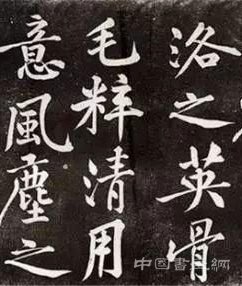 洛之英骨
毛粹清用
意風塵之
中国書法網